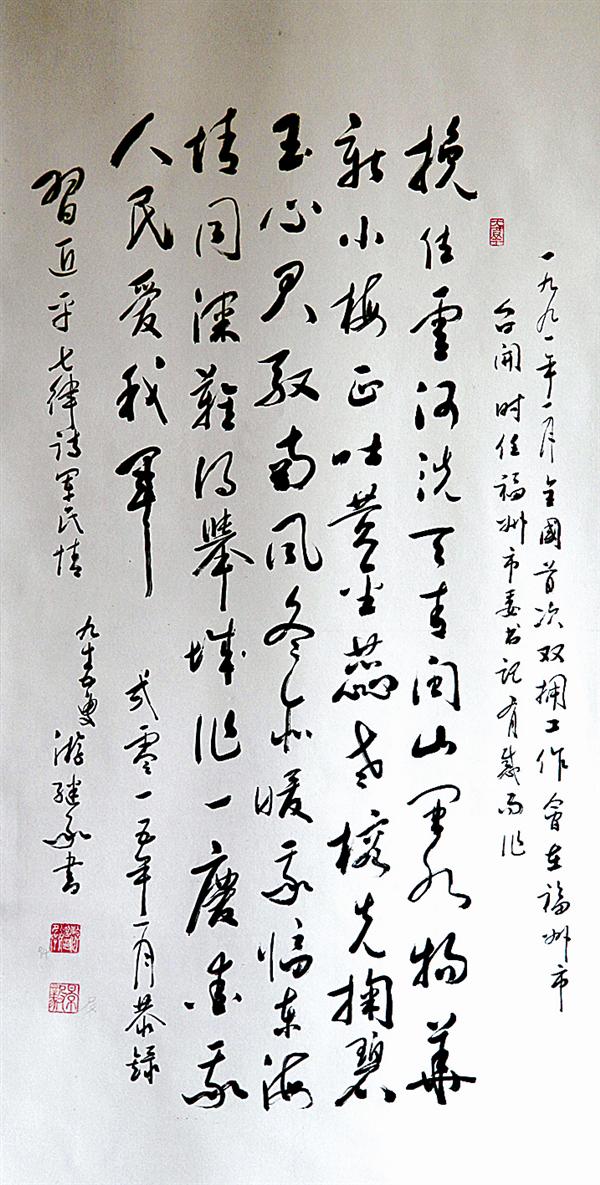 一九九一年一月全國首次双拥工作會在福州市
召開时任福州市委书记有感而作
挽住雲河洗天青闽山闽水物華
新小梅正吐黄金蕊老榕先掬碧
玉心君驭南風冬亦暖我临东海
情同深難得舉城作一慶爱我
人民爱我軍
弍零一五年一月恭録
習近平七律诗军民情
游 书